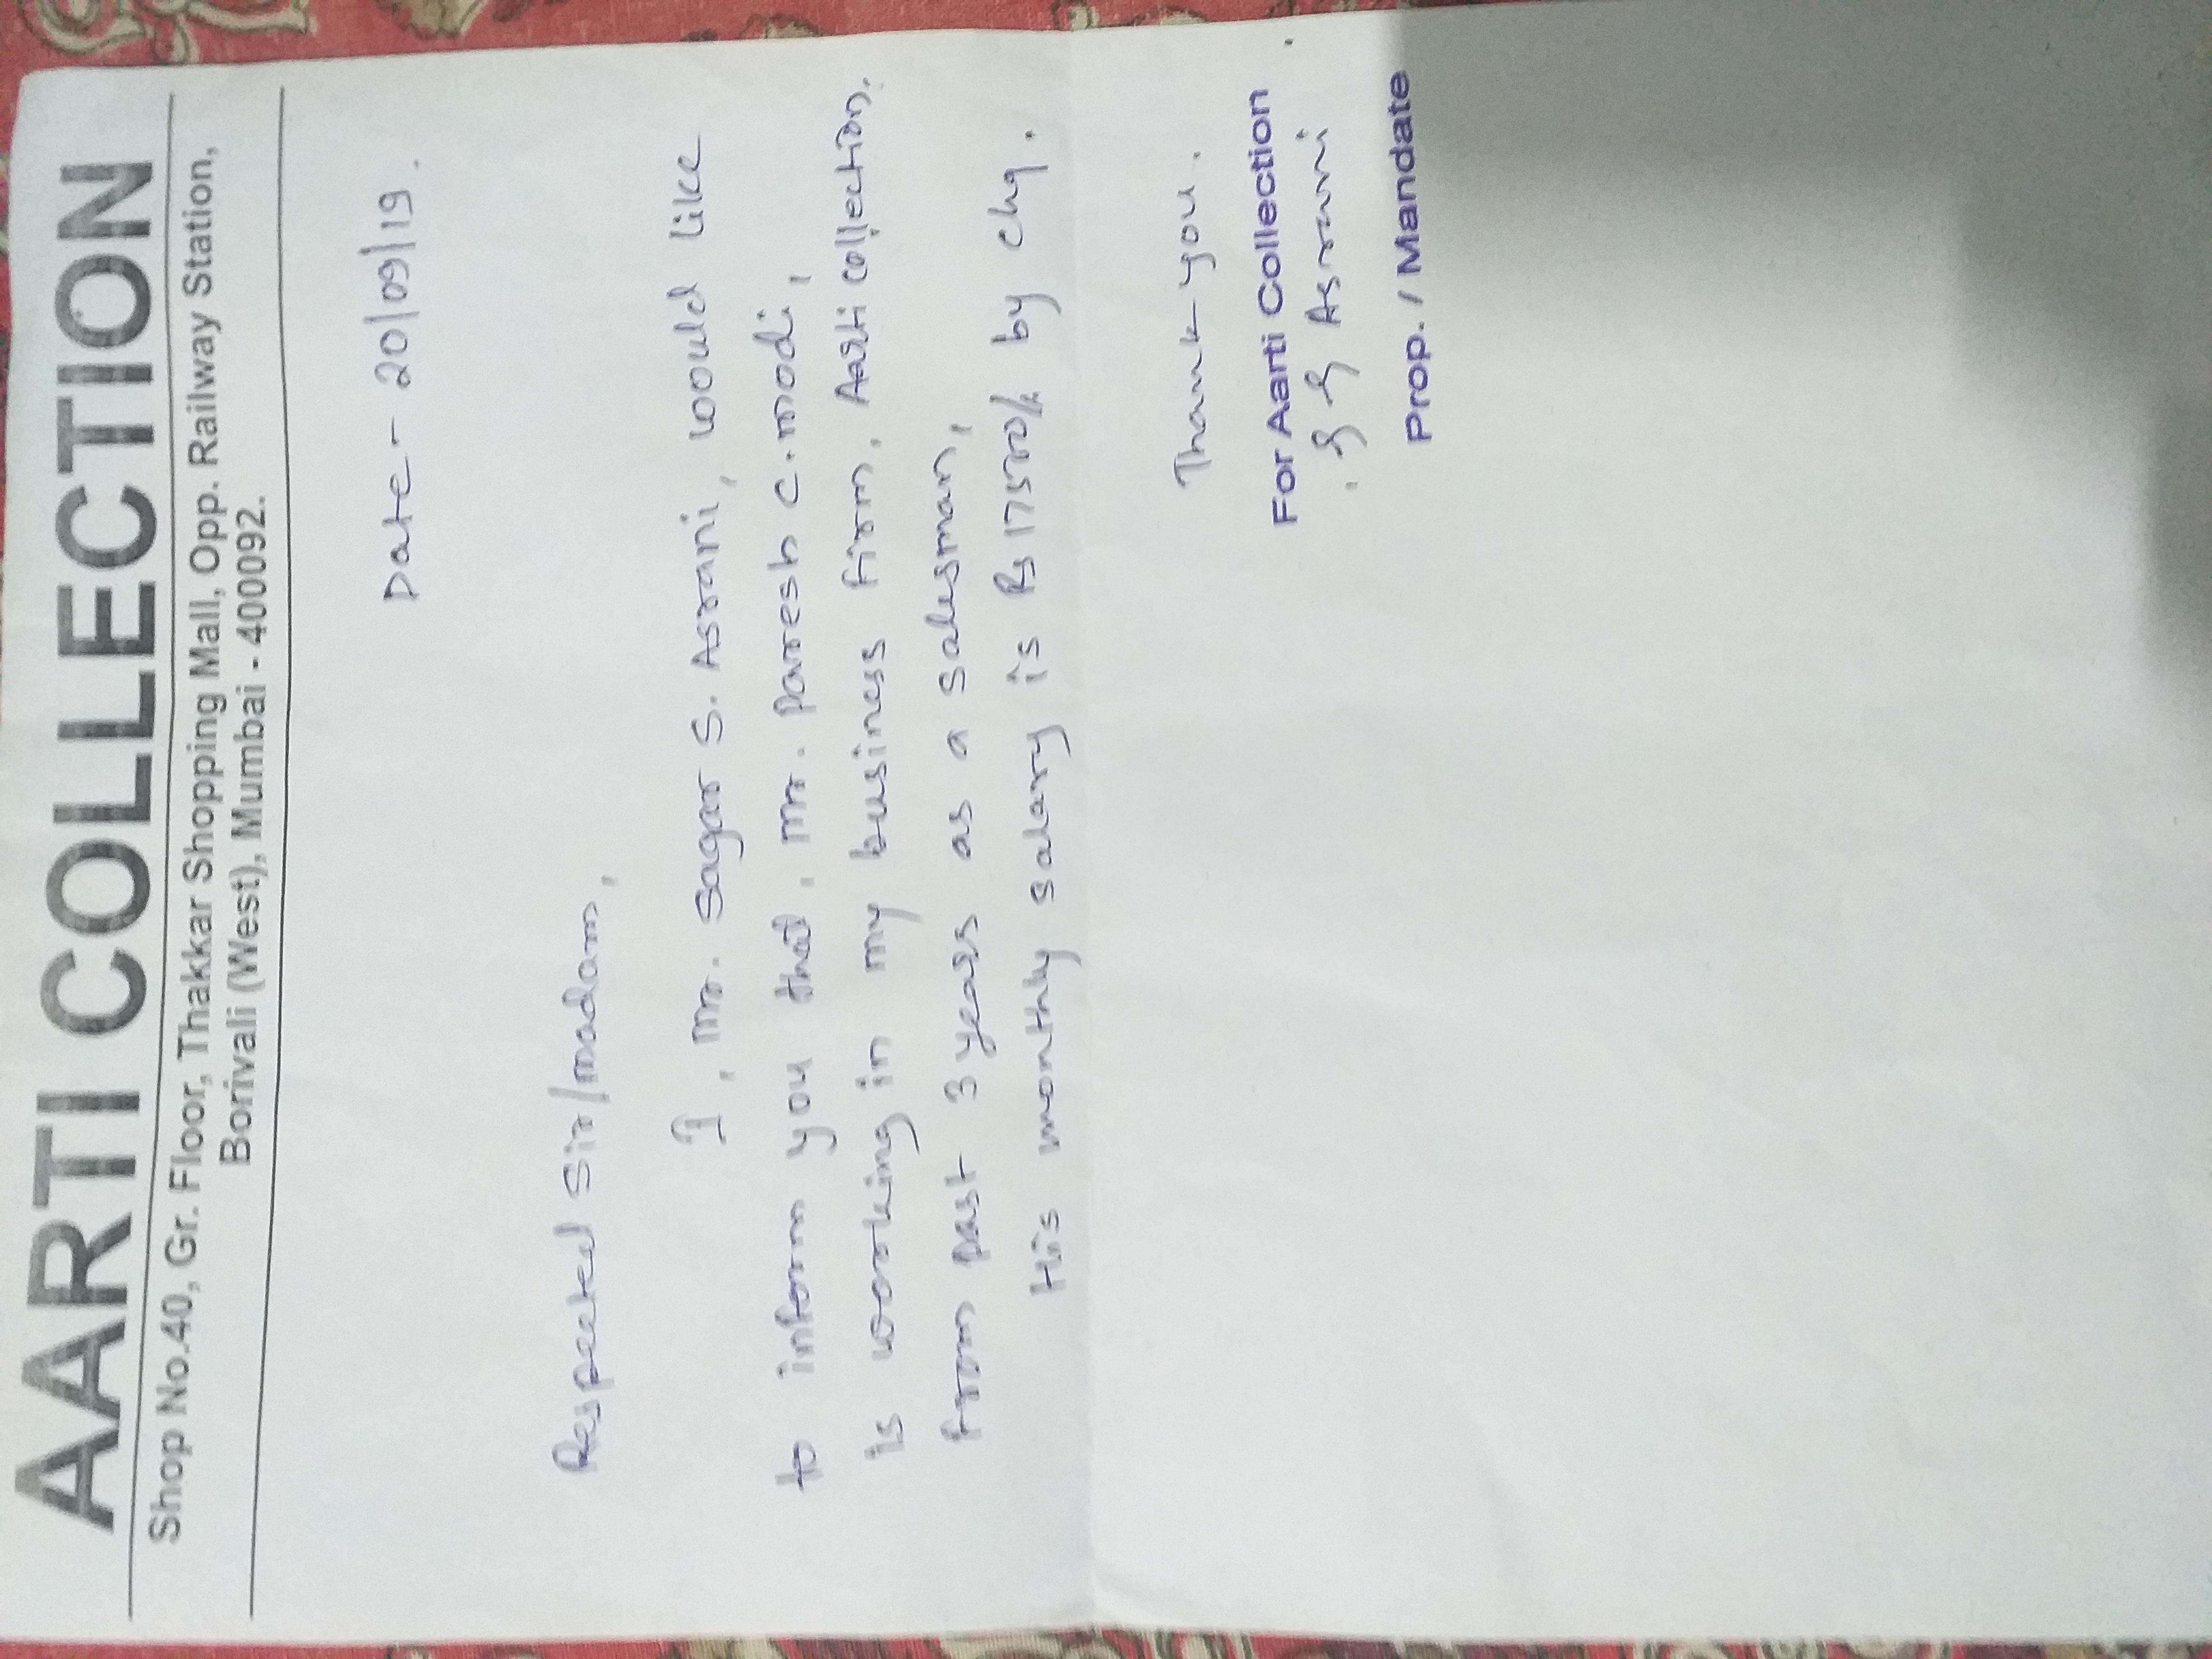 AARTI COLLECTION
Shop No.40, Gr. Floor, Thakkar Shopping Mall, Opp. Railway Station,
Borivali (West), Mumbai - 400092.
Date - 20/09/19.
Respected Sir/madam,
I, Mr. Sagar S. Asrani, would like
to inform you that, Mr. Paresh C. modi,
is working in my business firm, Aarti collection,
from past 3 years as a salesman,
His monthly salary is Rs 17500/- by chq.
Thank you.
For Aarti Collection
S S Asrani
Prop. / Mandate